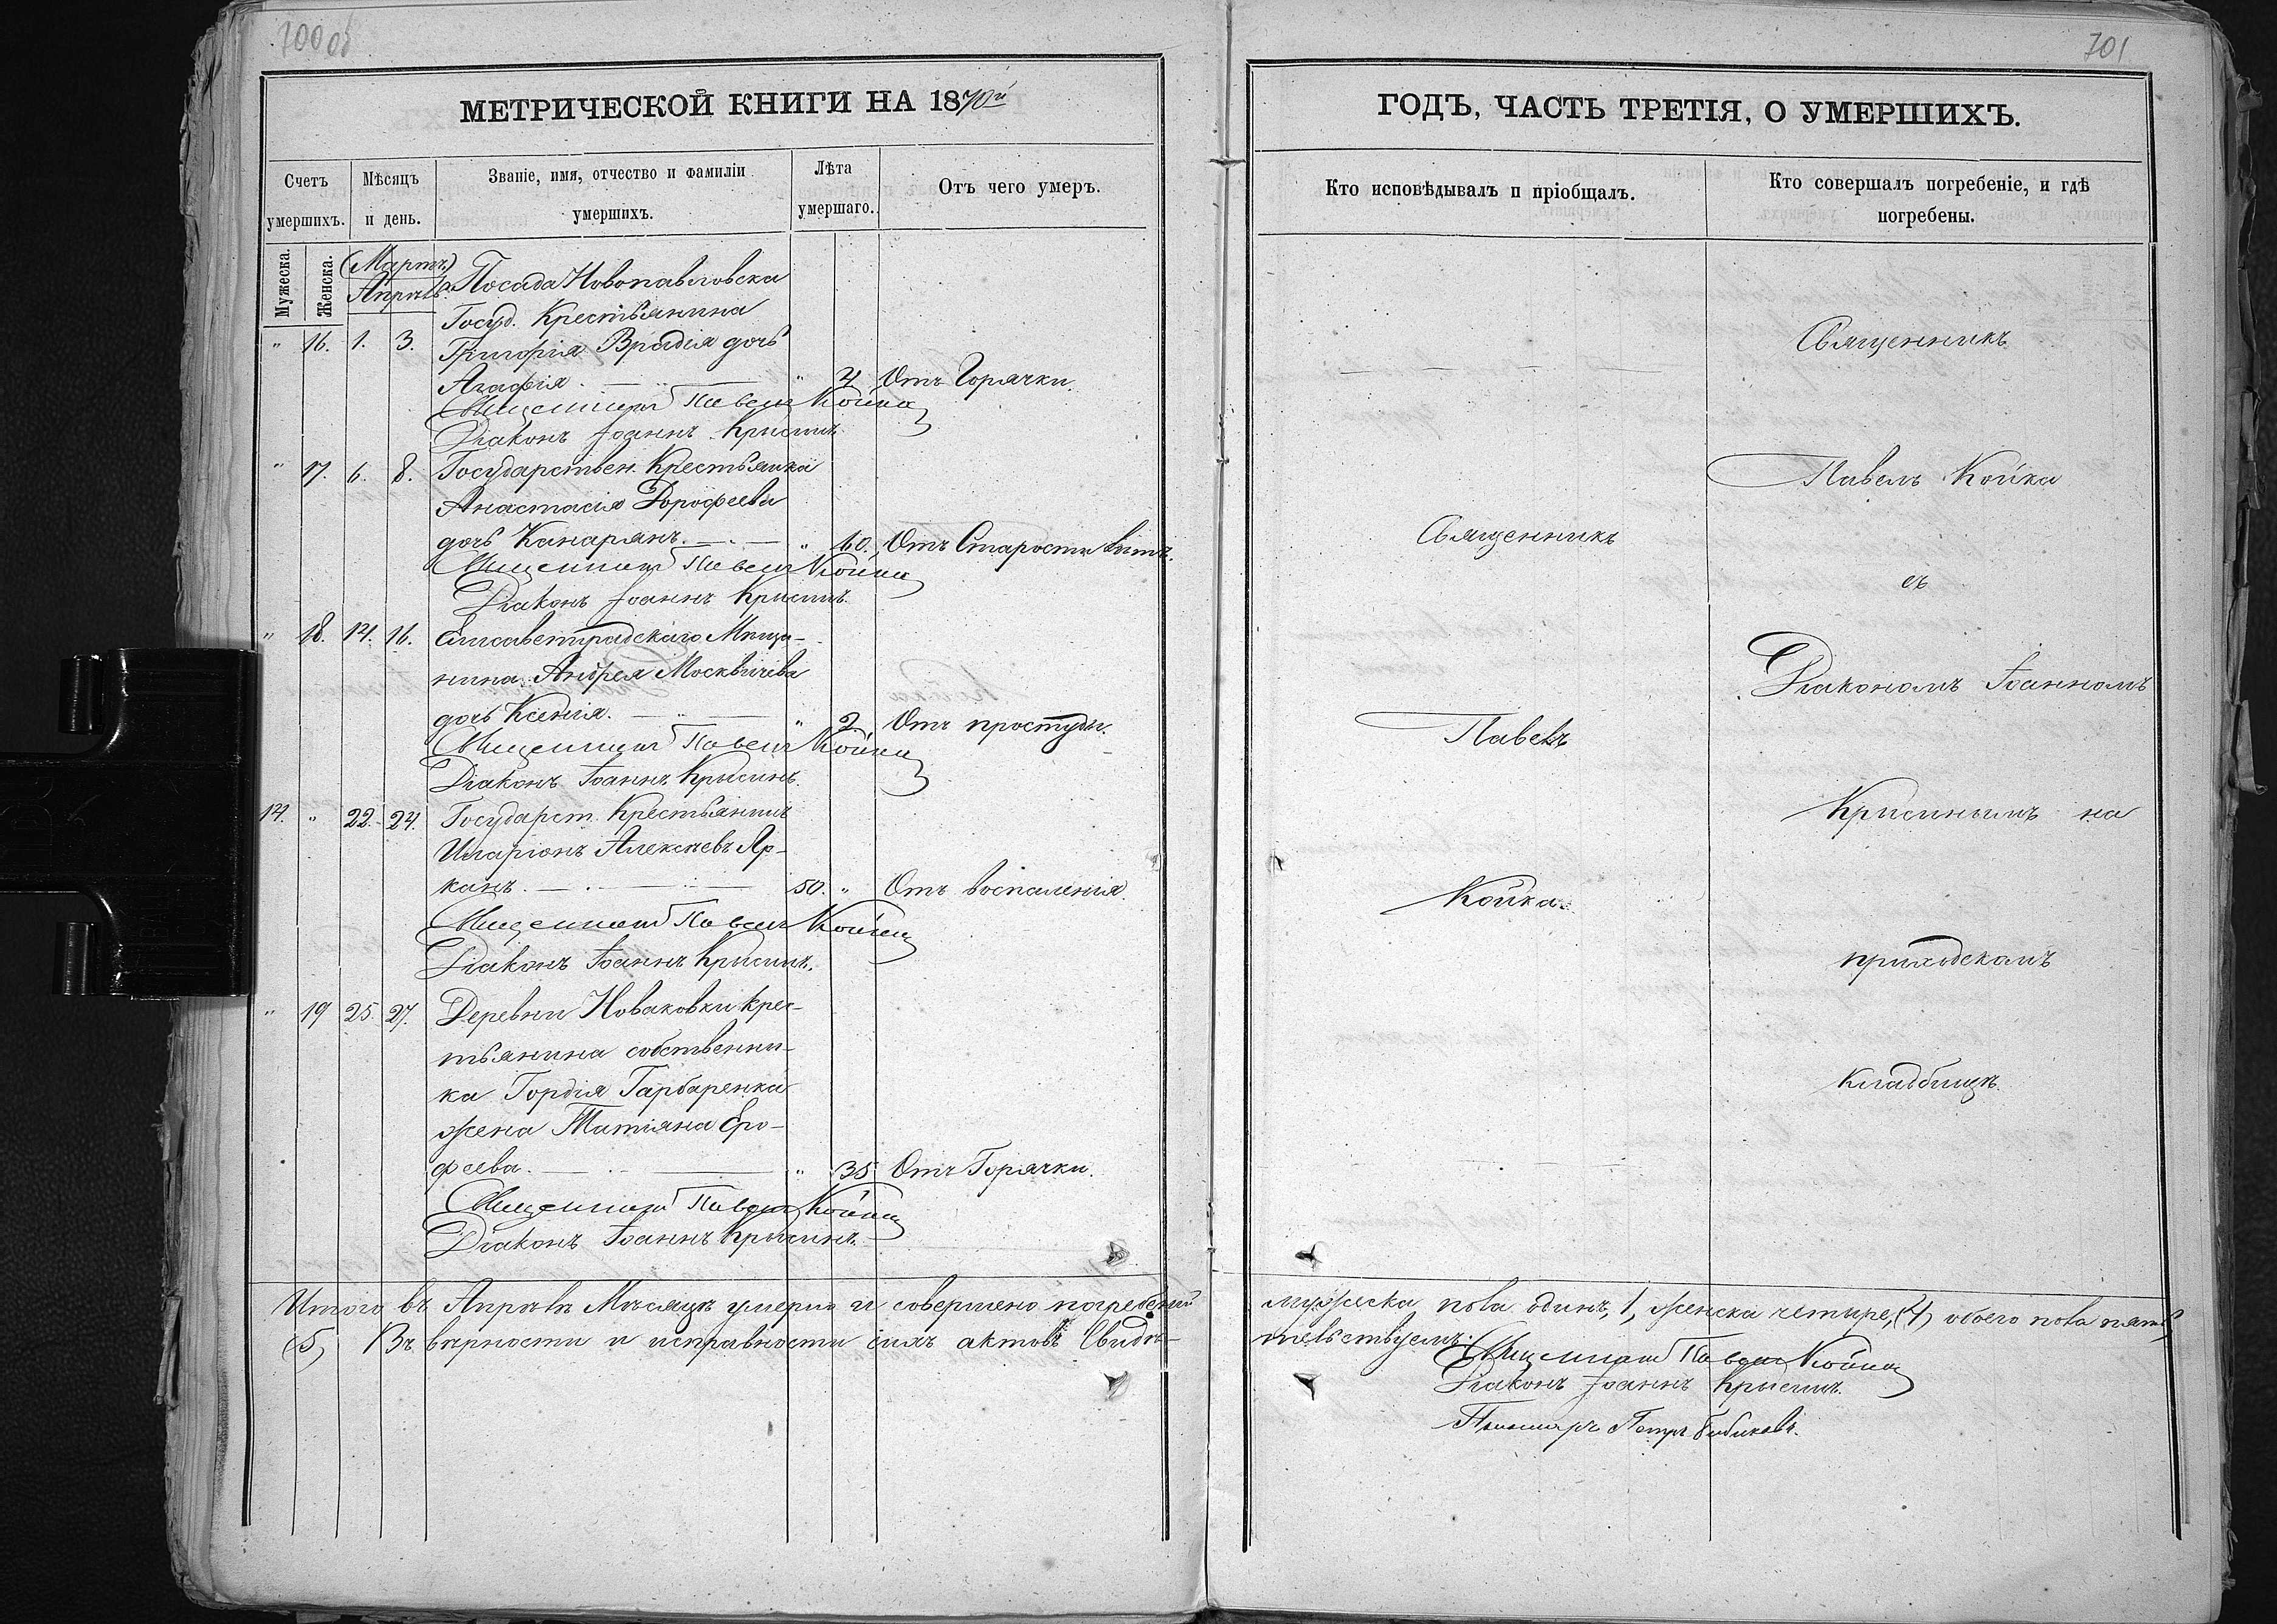 700 об
МЕТРИЧЕСКОЙ КНИГИ НА 1870й
Счетъ умершихъ.
Мужеска.
Женска.
Мѣсяцъ и день.
Званіе, имя, отчество и фамиліи умершихъ.
Лѣта умершаго.
Отъ чего умеръ.
(Мартъ)
Апрѣль.
Посада Новопавловска
Госуд. Крестьянина
" 16. 1. 3. Григорія Врадія дочь
Агафія. " 4 Отъ Горячки.
Священникъ Павелъ Койка
Діаконъ Іоаннъ Крысинъ
" 17. 6. 8. Государствен. Крестьянка
Анастасія Дорофеева
дочь Канарянъ. " 60. Отъ Старости лѣтъ.
Священникъ Павелъ Койка
Діаконъ Іоаннъ Крысинъ.
" 18. 14. 16. Елисаветградскаго Мѣща-
нина Андрея Москвичева
дочь Ксенія. " 2. Отъ простуды.
Священникъ Павелъ Койка
Діаконъ Іоаннъ Крысинъ.
14. " 22. 24. Государст. Крестьянинъ
Иларіонъ Алексѣевъ Яр-
канъ. 50. " Отъ воспаленія.
Священникъ Павелъ Койка
Діаконъ Іоаннъ Крысинъ.
" 19 25. 27. Деревни Новаковки крес-
тьянина собственни-
ка Гордія Гарбаренка
жена Татіяна Еро-
феева. " 35 Отъ Горячки.
Священникъ Павелъ Койка
Діаконъ Іоаннъ Крысинъ.
Итого въ Апрѣлѣ Мѣсяцѣ умерло и совершено погребеній
(5) Въ вѣрности и исправности сихъ актовъ Свидѣ-
701
ГОДЪ, ЧАСТЬ ТРЕТІЯ, О УМЕРШИХЪ.
Кто исповѣдывалъ и пріобщалъ.
Кто совершалъ погребеніе, и гдѣ погребены.
Священникъ
Павелъ
Койка.
Священникъ
Павелъ Койка
съ
Діакономъ Іоанномъ
Крисинымъ на
приходскомъ
кладбищѣ.
мужеска пола одинъ, 1, женска четыре, (4) обоего пола пять
тельствуемъ: Священникъ Павелъ Койка
Діаконъ Іоаннъ Крысинъ.
Пономарь Петръ Бибиковъ.